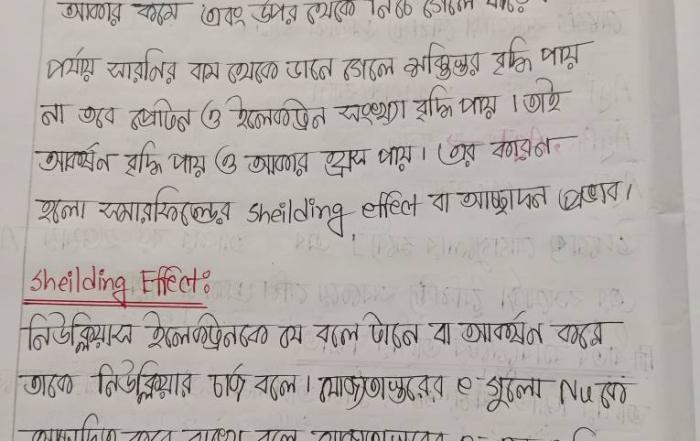 আকার কমে এবং উপর থেকে নিচে গেলে
পর্যায় সারনির বাম থেকে ডানে গেলে শক্তিস্তর বৃদ্ধি পায়
না তবে প্রোটন ও ইলেকট্রন সংখ্যা বৃদ্ধি পায়। তাই
আকর্ষন বৃদ্ধি পায় ও আকার হ্রাস পায়। এর কারন
হলো সমারফিল্ডের sheilding effect বা আচ্ছাদন প্রভাব।
sheilding Effect:
নিউক্লিয়াস ইলেকট্রনকে যে বলে টানে বা আকর্ষন করে
তাকে নিউক্লিয়ার চার্জ বলে। মধ্যেস্তরের e⁻ গুলো Nu কে